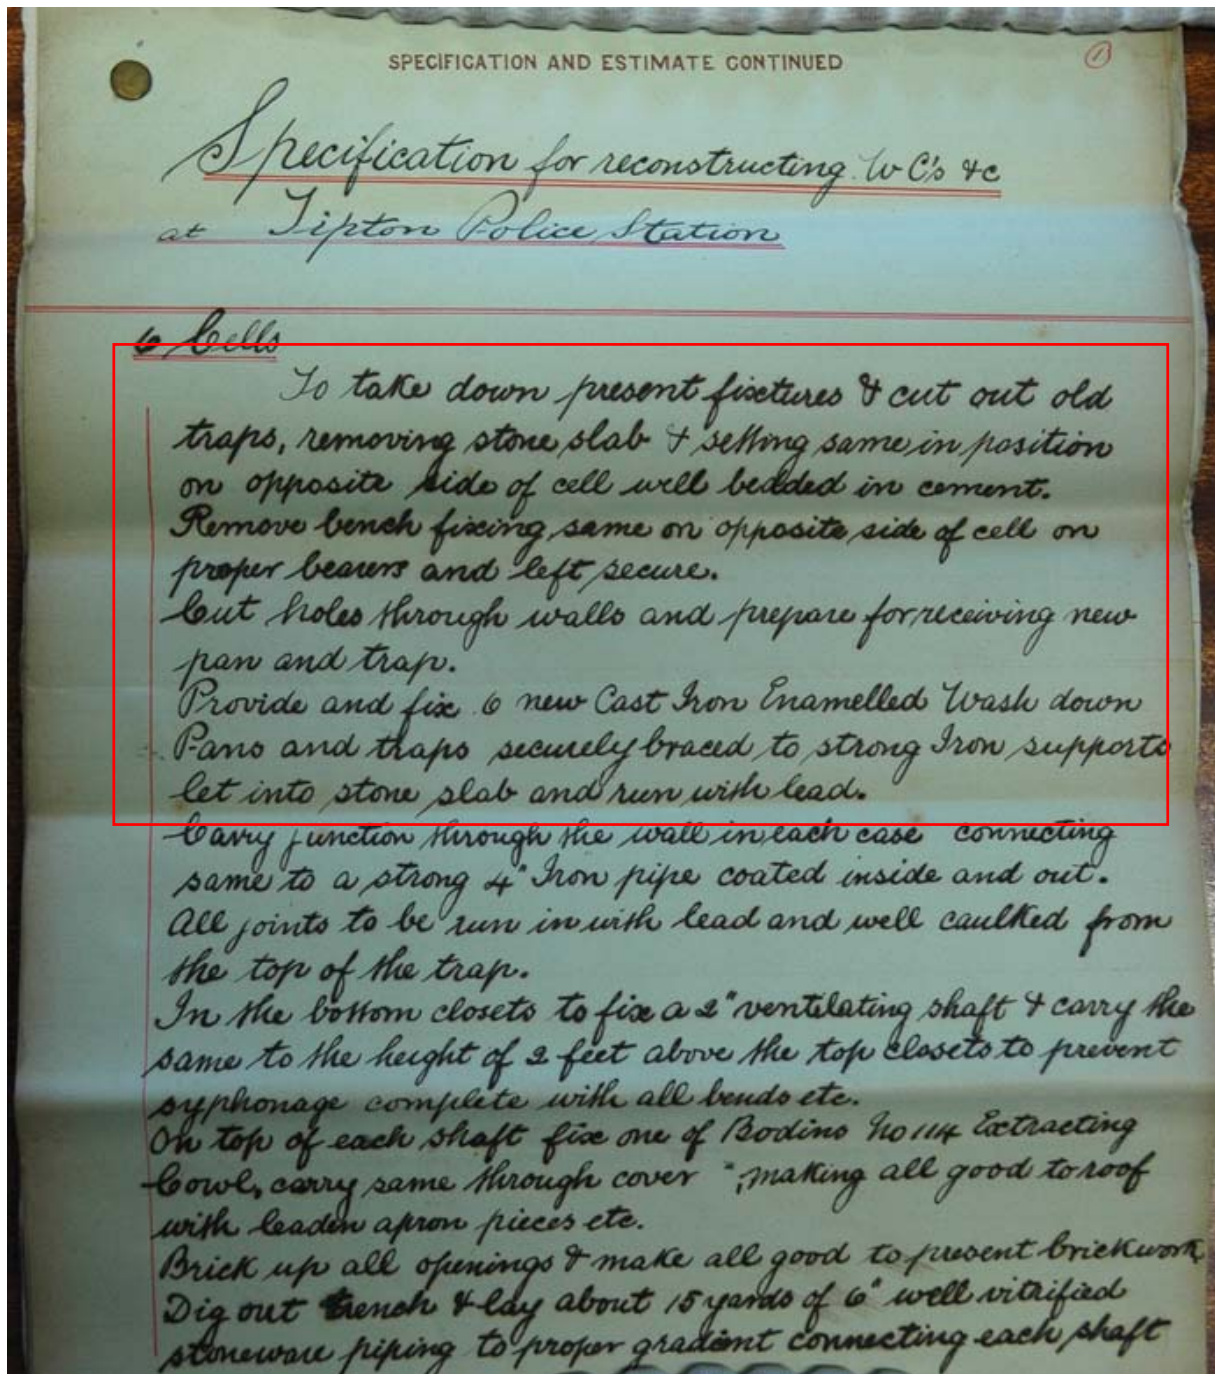 SPECIFICATION AND ESTIMATE CONTINUED
1
Specification for reconstructing W C's &c
at Tipton Police Station
6 Cells
To take down present fixtures & cut out old
traps, removing stone slab & setting same in position
on opposite side of cell well bedded in cement.
Remove bench fixing same on opposite side of cell on
proper bearers and left secure.
Cut holes through walls and prepare for receiving new
pan and trap.
Provide and fix 6 new Cast Iron Enamelled Wash down
Pans and traps securely braced to strong Iron supports
let into stone slab and run with lead.
Carry junction through the wall in each case connecting
same to a strong 4" Iron pipe coated inside and out.
All joints to be run in with lead and well caulked from
the top of the trap.
In the bottom closets to fix a 2" ventilating shaft & carry the
same to the height of 2 feet above the top closets to prevent
syphonage complete with all bends etc.
On top of each shaft fix one of Bodins No 114 Extracting
Cowl, carry same through cover ", making all good to roof
with leaden apron pieces etc.
Brick up all openings & make all good to present brickwork
Dig out trench & lay about 15 yards of 6" well vitrified
stoneware piping to proper gradient connecting each shaft